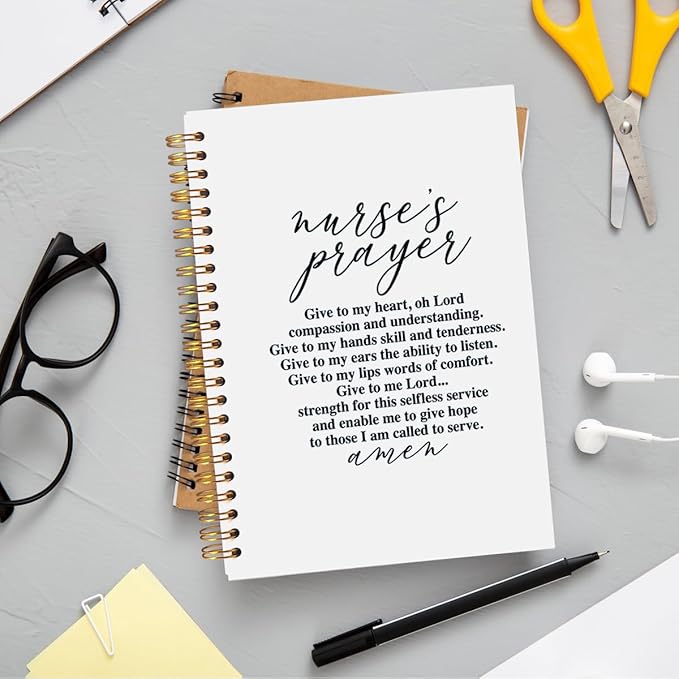 nurse's
prayer
Give to my heart, oh Lord
compassion and understanding.
Give to my hands skill and tenderness.
Give to my ears the ability to listen.
Give to my lips words of comfort.
Give to me Lord...
strength for this selfless service
and enable me to give hope
to those I am called to serve.
amen